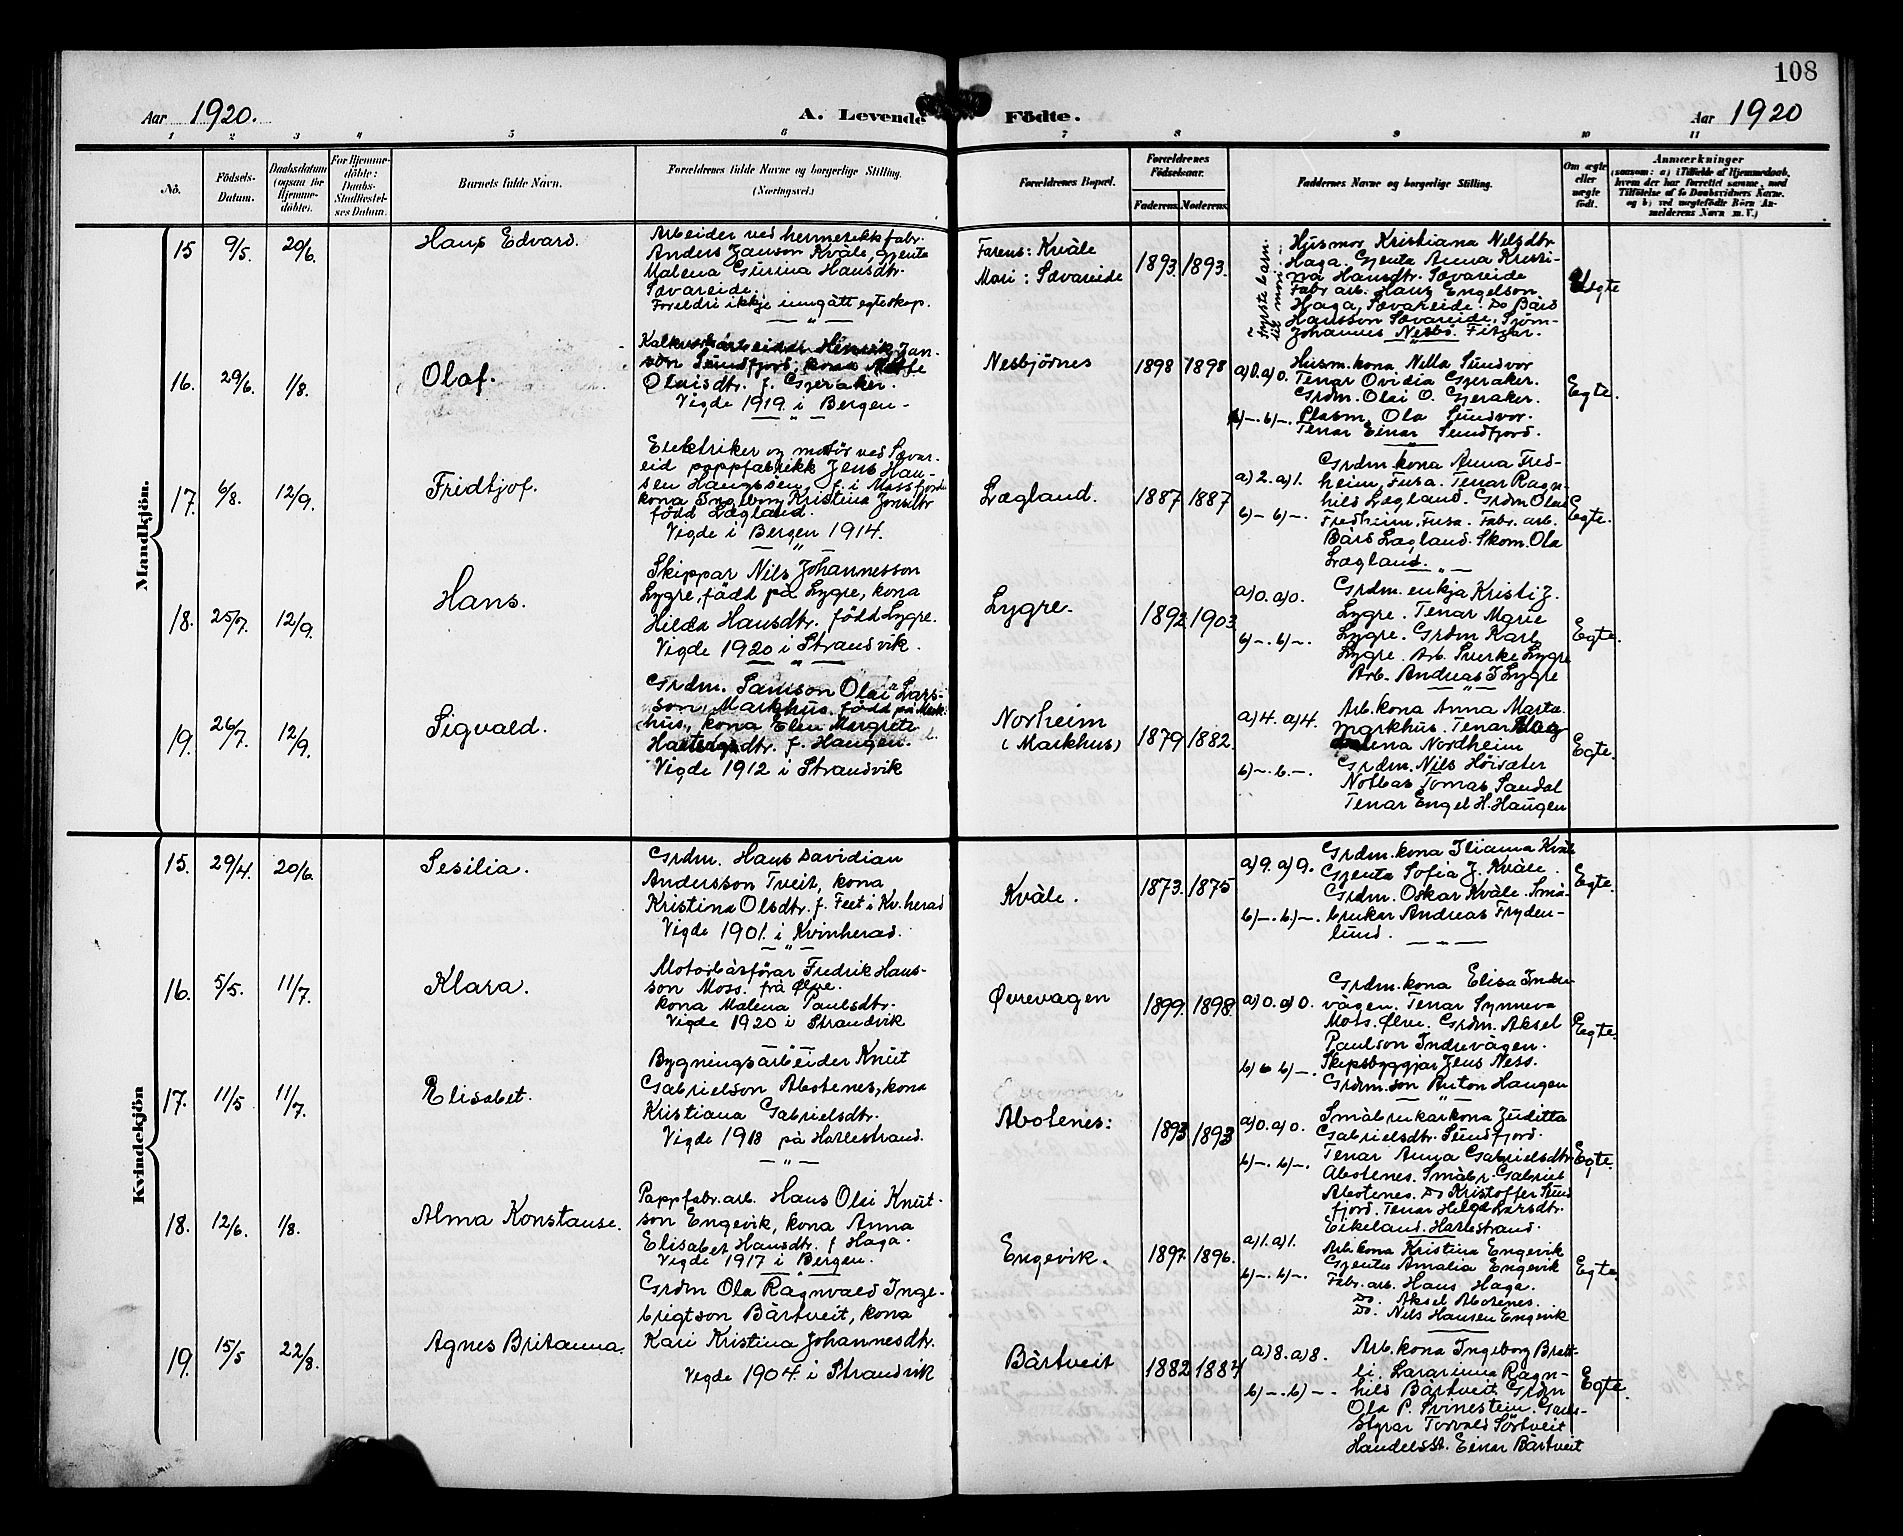 108
Aar 1920.
A. Levende Födte.
Aar 1920
1 2 3 4 5 6 7 8 9 10 11
No.
Födsels-
Datum.
Daabsdatum
(ogsaa for
Hjemme-
döbte).
For Hjemme-
döbte:
Daabs-
Stadfæstel-
ses Datum.
Barnets fulde Navn.
Forældrenes fulde Navne og borgerlige Stilling.
(Næringsvei.)
Forældrenes Bopæl.
Forældrenes
Födselsaar.
Faderens. Moderens.
Faddernes Navne og borgerlige Stilling.
Om ægte
eller
uægte
født.
Anmærkninger
(saasom: a) i Tilfælde af Hjemmedaab,
hvem der har forrettet samme, med
Tilföielse af to Daabsvidners Navne,
og b) ved uægtefödte Börn An-
melderens Navn m. V.)
Mandkjön.
15 9/5. 20/6.
Hans Edvard.
Arbeider ved hermetikkfabr.
Anders Janson Kvåle, gjenta
Malena Gurina Hansdtr.
Sævareide.
Foreldri ikkje inngått egteskap.
Farens: Kvåle
Mori: Sævareide
1893. 1893.
Fyrste barn
til mori
Husmor Kristiana Nilsdtr
Haga. Gjenta Anna Kristi-
na Hansdtr. Sævareide
Fabr arb. Hans Engelson
Haga, Sævareide. Do Bård
Hansson Sævareide. Sjöm-
Johannes Nesbö. Fitjar.
Uegte
16. 29/6. 1/8.
Olaf.
Kalkverksarbeidar Henrik Jan-
son Sundfjord, kona
Olaisdtr. f. Gjeraker.
Vigde 1919 i Bergen -
Nesbjörnes
1898 1898
a) 0. a) 0.
b) -. b) -.
Husm. kona Nilla Sundvor
Tenar Ovidia Gjeraker.
Grdm. Olai O. Gjeraker.
Plasm. Ola Sundvor.
Tenar Einar Sundfjord.
Egte.
17. 6/8. 12/9.
Fridtjof.
Elektriker og motör ved Sævar-
eid pappfabrikk Jens Han-
sen Haugssen, f. i Masfjorde
kona Ingeborg Kristina Jonsdtr
född Lægland.
Vigde i Bergen 1914.
Lægland.
1887 1887
a) 2. a) 1.
b) -. b) -.
Grdm. kona Anna Fred-
heim, Fusa. Tenar Ragn-
hild Lægland. Grdm Olai
Fredheim, Fusa. Fabr. arb.
Bård Lægland. Skom. Ola
Lægland.
Egte.
18. 25/7. 12/9.
Hans.
Skippar Nils Johannesson
Lygre, född på Lygre, kona
Hilda Hansdtr. född Lygre.
Vigde 1920 i Strandvik.
Lygre.
1892. 1903.
a) 0. a) 0.
b) -. b) -.
Grdm. enkja Kristi J.
Lygre. Tenar Marie
Lygre. Grdm Karl
Lygre. Arb. Sverke Lygre
Arb. Andreas J Lygre
Egte.
19. 26/7. 12/9.
Sigvald.
Grdm. Samson Olai Lars-
son, Markhus, född på Mark-
hus, kona Elen Margreta
f. Haugen.
Vigde 1912 i Strandvik
Norheim
(Markhus)
1879 1882.
a) 4. a) 4.
b) -. b. -.
Arb. kona Anna Marta
Markhus. Tenar
Nordheim
Grdm. Nils Höisæter
Notbas Tomas Sandal
Tenar Engel H. Haugen
Egte.
Kvindekjön
15. 29/4. 20/6.
Sesilia.
Grdm. Hans Davidian
Andersson Tveit, kona
Kristina Olsdtr. f. Feet i Kv. herad
Vigde 1901. i Kvinherad.
Kvåle.
1873. 1875
a) 9. a) 9.
b) -. b.) -.
Grdm. kona Iliana Kvål
Gjenta Sofia J. Kvåle.
Grdm. Oskar Kvåle. Små-
brukar Andreas Fryden-
lund.
Egte.
16. 5/5. 11/7.
Klara.
Motorbåtförar Fredrik Hans-
son Moss. frå Ølve.
kona Malena Paulsdtr.
Vigde 1920 i Strandvik
Øvrevagen
1899. 1898.
a) 0. a) 0.
b) b) -.
Grdm. kona Elisa Indre
vågen. Tenar Synneva
Moss. Ølve. Grdm. Aksel
Paulson Indrevågen.
Skipsbyggjar Jens Ness.
Grdm. son Anton Haugen
Egte.
17. 11/5 11/7.
Elisabet.
Bygningsarbeider Knut
Gabrielson Abotenes, kona
Kristiana Gabrielsdtr.
Vigde 1918 på Harlestrand.
Abotenes:
1893 1893
a) 0. a) 0.
b) -. b) -.
Småbrukarkona Juditta
Gabrielsdtr. Sundfjord.
Tenar Anna Gabrielsdtr
Abotenes. Småbr. Gabriel
Abotenes. Do Kristoffer Sund
fjord. Tenar Helga Larsdtr.
Eikeland. Harlestrand.
Egte.
18. 12/6. 1/8.
Alma Konstanse.
Pappfabr. arb. Hans Olai Knut-
son Engevik, kona Anna
Elisabet Hansdtr. f Haga.
Vigde 1917 i Bergen.
Engevik.
1897. 1896.
a) 1. a) 1.
b) -. b) -.
Arb. kona Kristina Engevik
Gjenta Amalia Engevik
Fabr. arb. Hans Haga.
Do. Aksel Abotenes.
Do. Nils Hansen Engevik
Egte.
19. 15/5 22/8.
Agnes Britanna.
Grdm Ola Ragnvald Inge-
brigtson Bårtveit, kona
Kari Kristina Johannesdtr.
Vigde 1904. i Strandvik
Bårtveit
1882 1884
a) 8. a) 8.
b) -. b) -.
Arb. kona Ingeborg Bratt-
li. Lærarinna Ragn-
hild Bårtveit. Grdm
Ola P. Svinestein. Gards-
styrar Torvald Sörtveit
Handelsst. Einar Bårtveit
Egte.